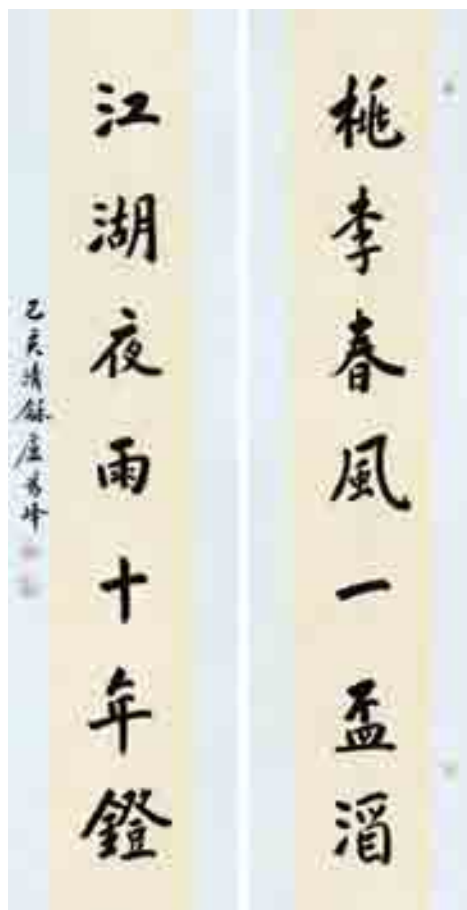 桃李春風一盃酒
江湖夜雨十年鐙
己亥清盧峰